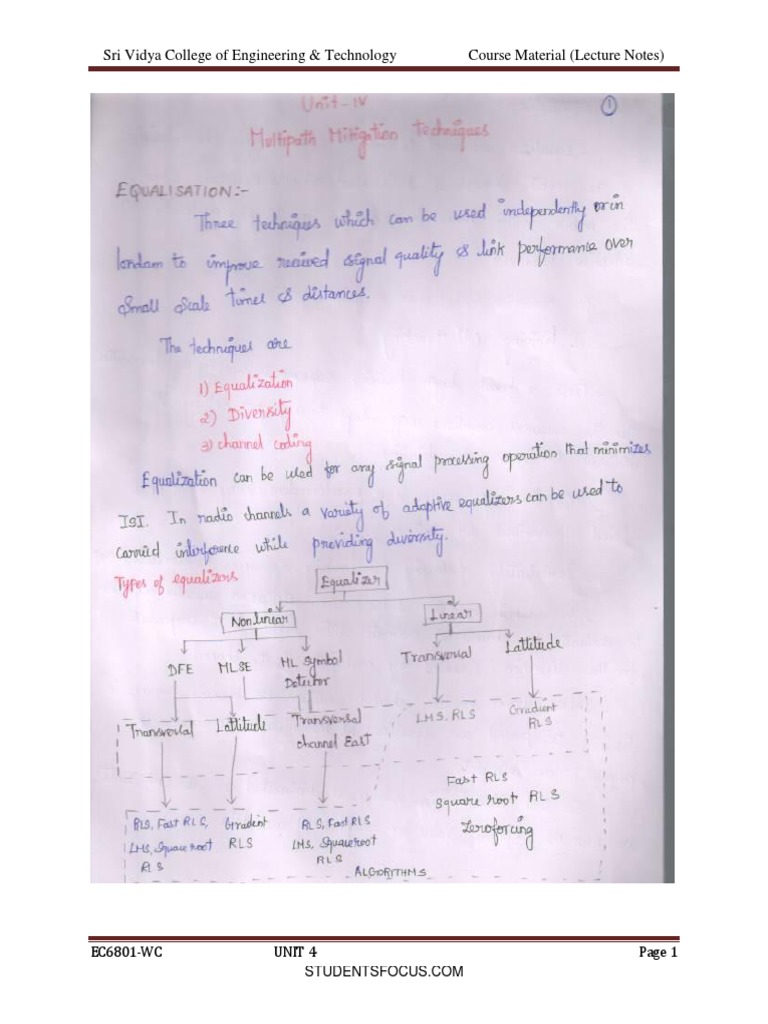 Sri Vidya College of Engineering & Technology Course Material (Lecture Notes)
Unit-IV
1
Multipath Mitigation Techniques
EQUALISATION:-
Three techniques which can be used independently or in
landam to improve recieved signal quality & link performance over
Small Scale times & distances.
The techniques are
1) Equalization
2) Diversity
3) channel coding
Equalization can be used for any signal processing operation that minimizes
ISI. In radio channels a variety of adaptive equalizers can be used to
carried interference while previding diversity.
Types of equalizers
Equalizer
Nonlinear Linear
DFE MLSE ML Symbol Detector Transversal Lattitude
Transversal Lattitude Transversal channel East LMS, RLS Gradient RLS
Fast RLS
Square root RLS
Zeroforcing
RLS, Fast RLS, Gradient RLS, Fast RLS
LMS, Square root RLS LMS, Squareroot
RLS RLS
ALGORITHMS
EC6801-WC UNIT 4 Page 1
STUDENTSFOCUS.COM